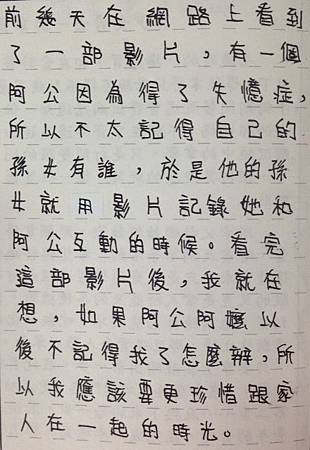 前幾天在網路上看到
了一部影片，有一個
阿公因為得了失憶症，
所以不太記得自己的
孫女有誰，於是他的孫
女就用影片記錄她和
阿公互動的時候。看完
這部影片後，我就在
想，如果阿公阿嬤以
後不記得我了怎麼辦，所
以我應該要更珍惜跟家
人在一起的時光。